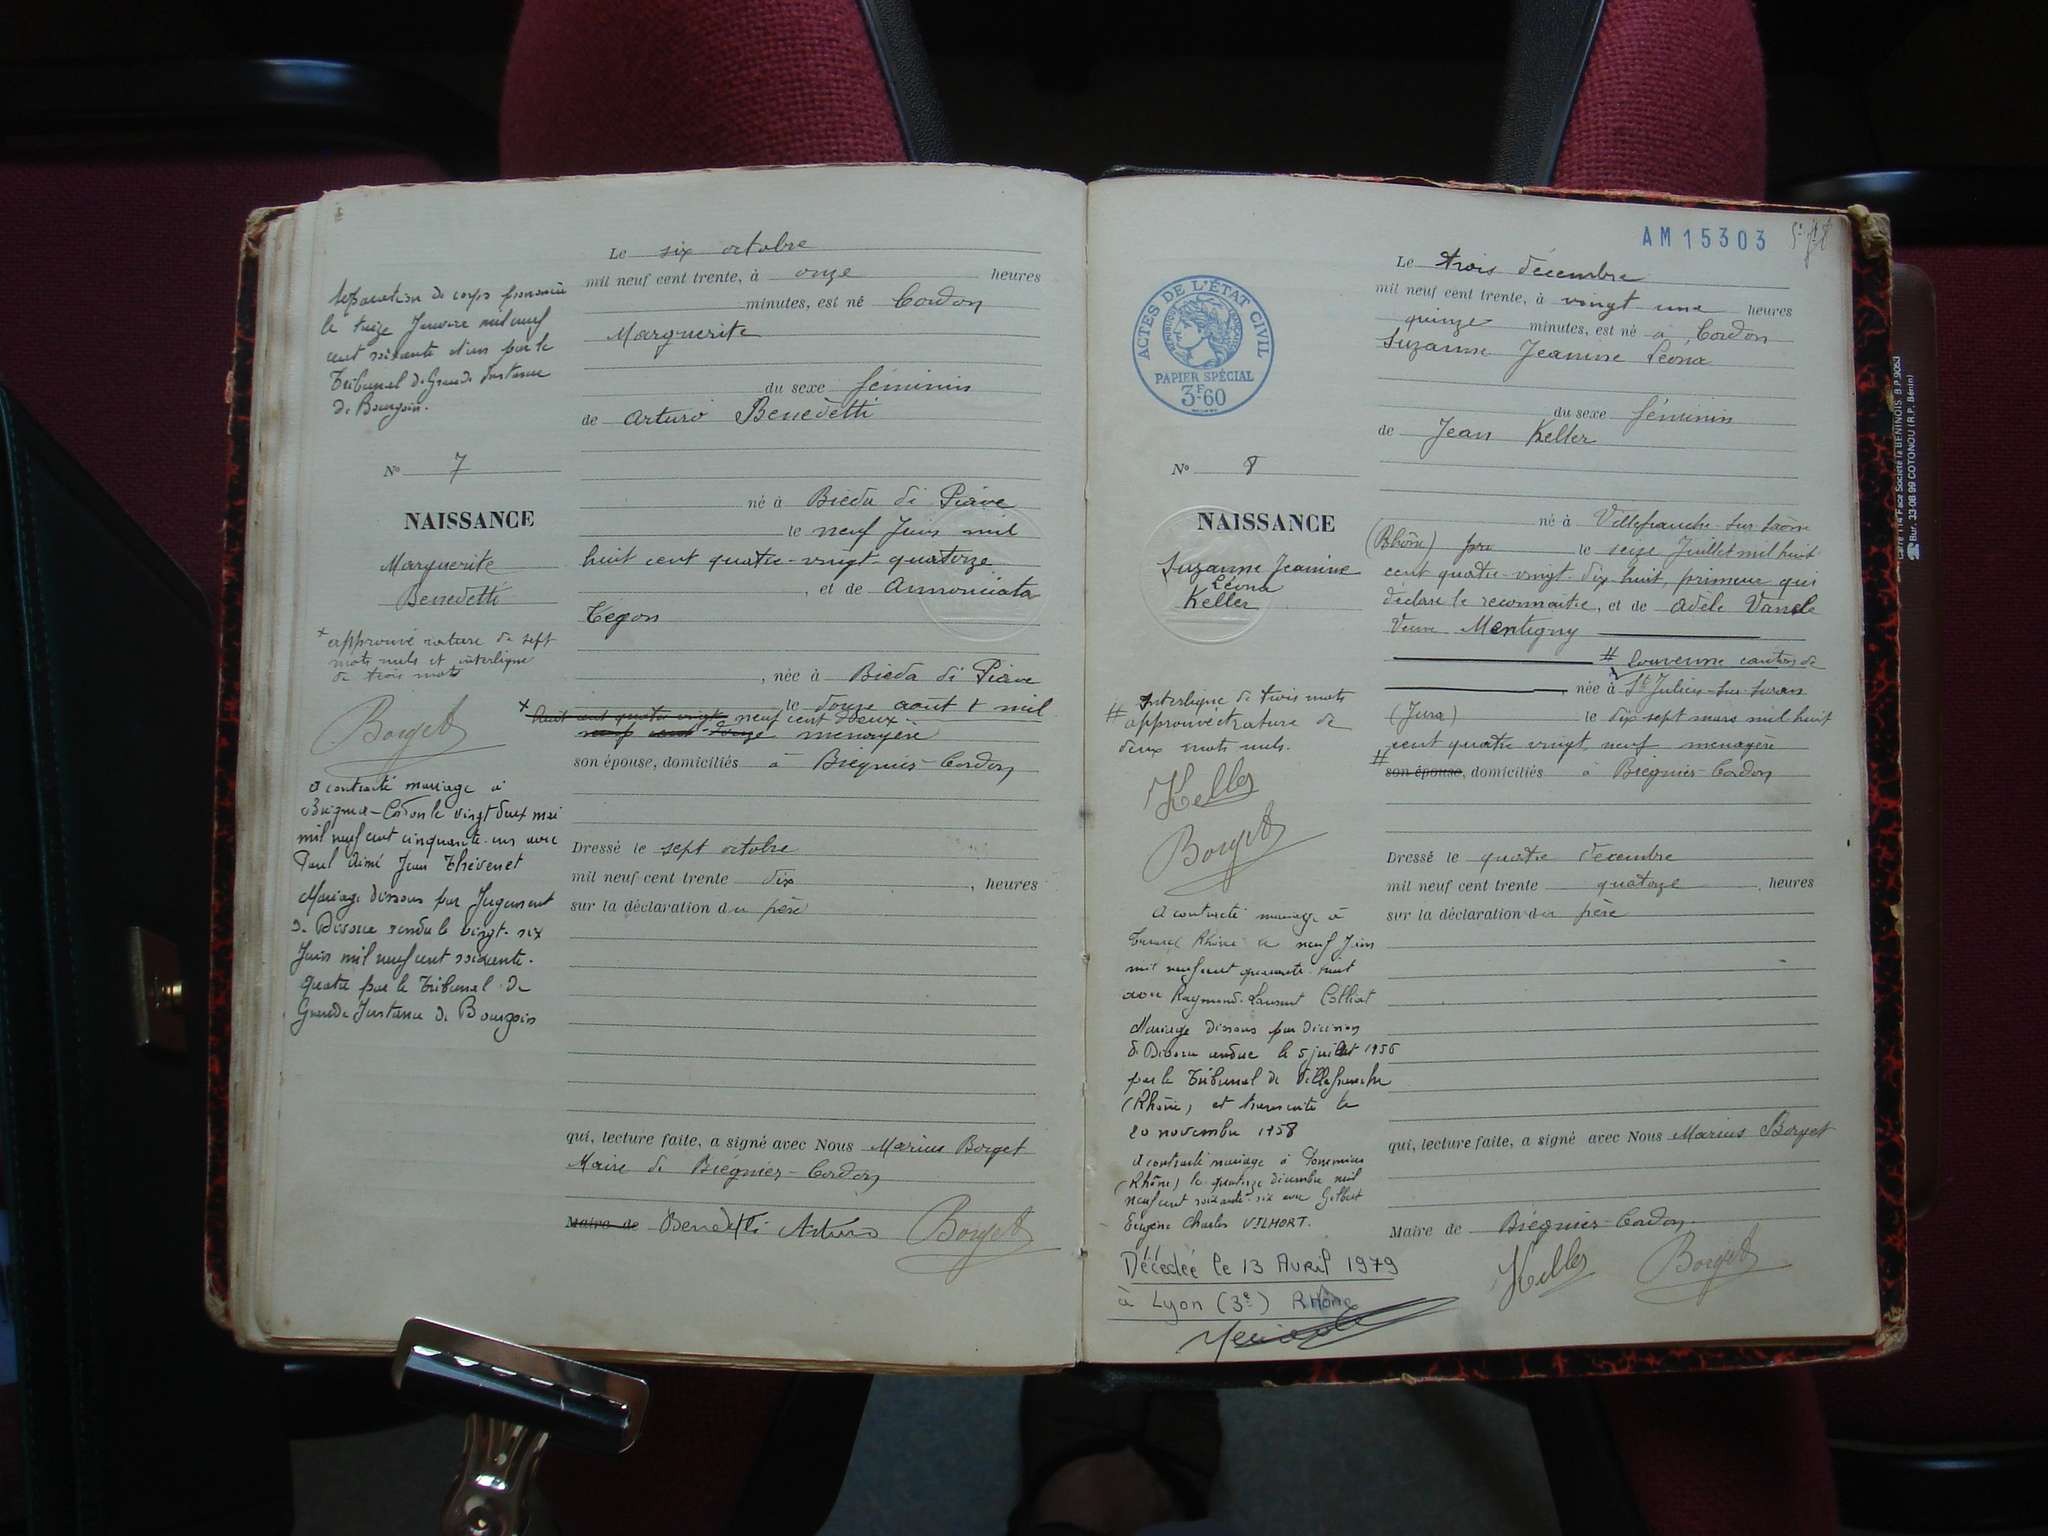 Le six octobre
mil neuf cent trente, à onze heures
minutes, est né Cordon
Marguerite
du sexe féminin
de Arturo Benedetti
né à Bieda di Piave
le neuf Juin mil
huit cent quatre-vingt-quatorze
, et de Annonciata
Tegon
, née à Bieda di Piave
le douze août + mil
x huit cent quatre vingt neuf cent deux
neuf cent douze menagère
son épouse, domiciliés à Brégnier-Cordon
Dressé le sept octobre
mil neuf cent trente dix , heures
sur la déclaration du père
qui, lecture faite, a signé avec Nous Marius Borget
Maire de Brégnier-Cordon
Maire de Benedetti Arturo Borget
Séparation de corps prononcée
le treize Janvier mil neuf
cent soixante et un par le
Tribunal de Grande Instance
de Bourgoin.
No 7
NAISSANCE
Marguerite
Benedetti
x approuvé rature de sept
mots nuls et interligne
de trois mots
Borget
A contracté mariage à
Brégnier-Cordon le vingt deux mai
mil neuf cent cinquante-un avec
Paul Aimé Jean Thévenet
Mariage dissous par Jugement
de Divorce rendu le vingt-six
Juin mil neuf cent soixante-
quatre par le Tribunal de
Grande Instance de Bourgoin
AM 15303
ACTES DE L'ÉTAT CIVIL
PAPIER SPÉCIAL
3F.60
Le trois décembre
mil neuf cent trente, à vingt une heures
quinze minutes, est né à Cordon
Suzanne Jeanine Léona
du sexe féminin
de Jean Keller
né à Villefranche-sur-Saône
(Rhône) le seize Juillet mil huit
cent quatre-vingt-dix-huit, primeur qui
déclare le reconnaitre, et de Adèle
Veuve Montigny
# Louvenne canton de
née à St Julien-sur-Suran
(Jura) le dix sept mars mil huit
cent quatre vingt neuf menagère
# son épouse, domiciliés à Brégnier-Cordon
Dressé le quatre decembre
mil neuf cent trente quatorze , heures
sur la déclaration du père
qui, lecture faite, a signé avec Nous Marius Borget
Maire de Brégnier-Cordon.
Keller Borget
No 8
NAISSANCE
Suzanne Jeanine
Léona
Keller
Interligne de trois mots
# approuvé et rature de
deux mots nuls.
Keller
Borget
A contracté mariage à
Rhône le neuf Juin
mil neuf cent quarante-huit
avec Raymond-Laurent Colliat
Mariage dissous par décision
de Divorce rendue le 5 juillet 1956
par le Tribunal de Villefranche
(Rhône) et transcrite le
20 novembre 1958
A contracté mariage à Pommiers
(Rhône) le quatorze décembre mil
neuf cent soixante-six avec Gilbert
Eugène Charles VILMORT.
Décédée le 13 Avril 1979
à Lyon (3e) Rhône
Carré 114 Face Société la BENINOIS. B.P. 9093
Bur. 33 08 99 COTONOU (R.P. Bénin)